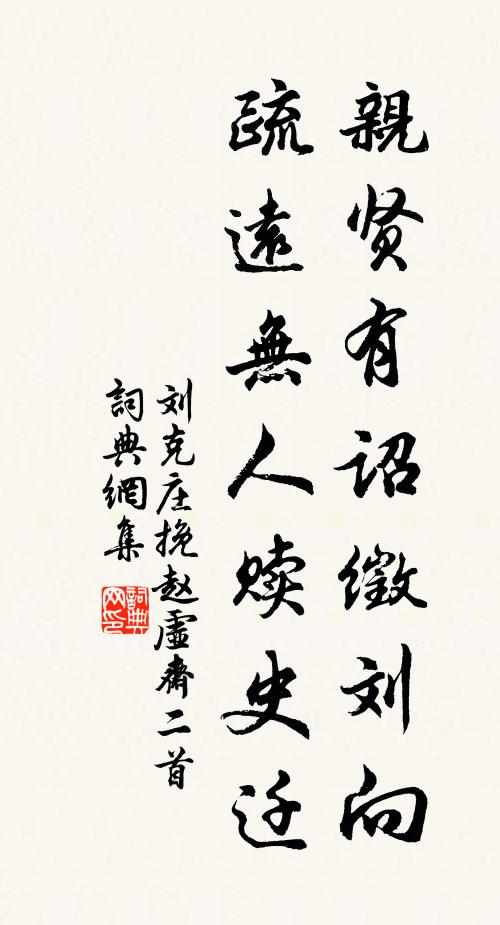 親贤有诏徵刘向
疏遠無人赎史迁
刘克庄挽赵虚斋二首
詞典網集
詞典网印